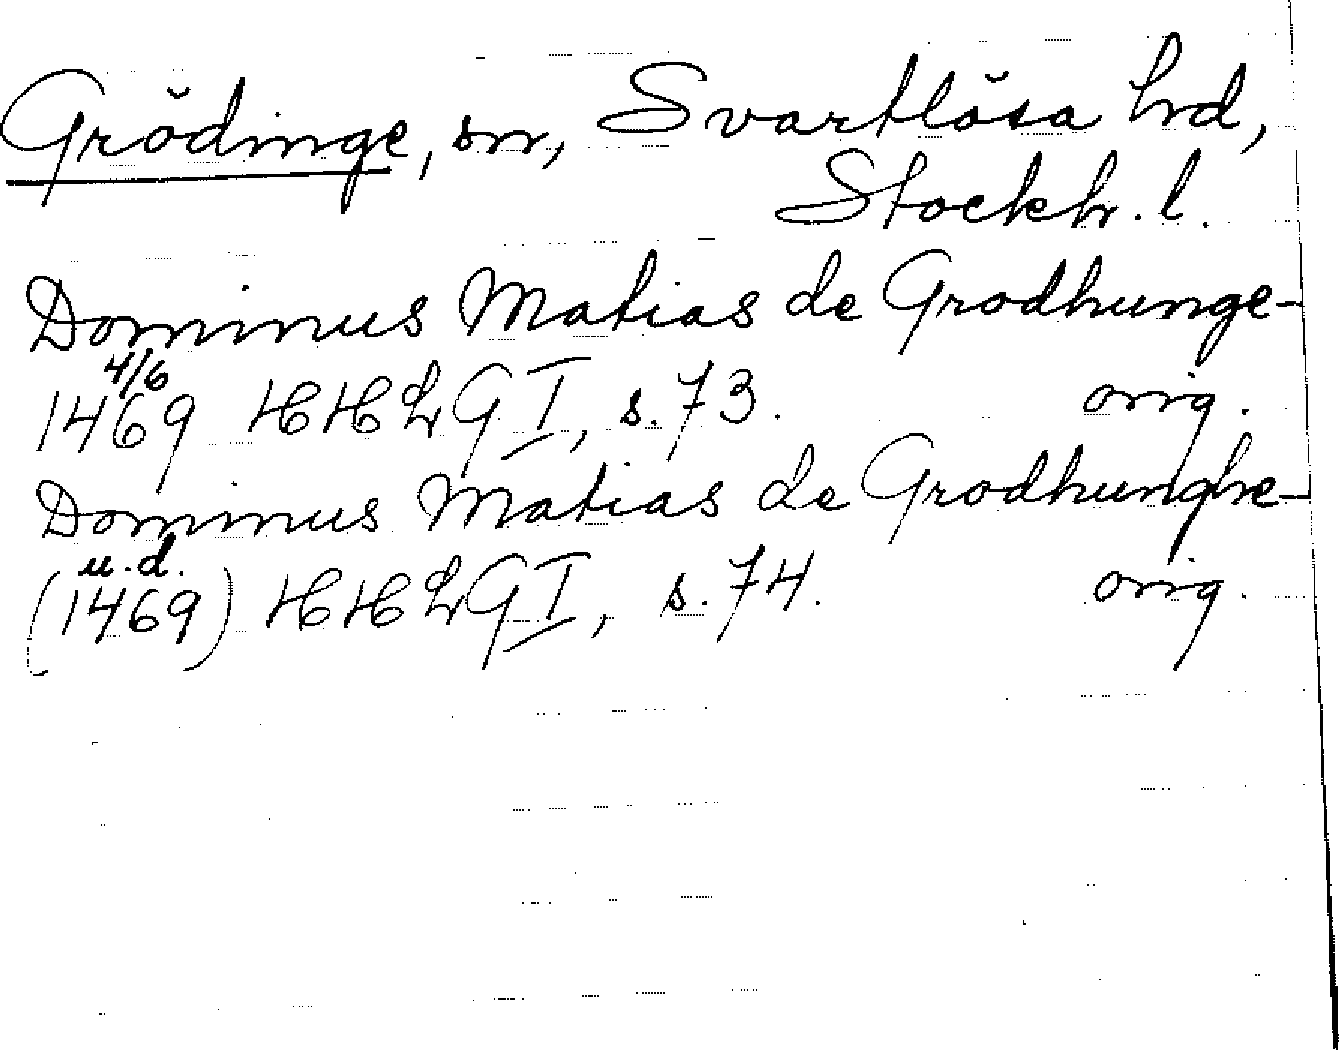 Grödinge, sn, Svartlösa hd,
Stockh. l.
Dominus Matias de Grodhunge-
4/6
1469 HHLG I, s. 73. orig.
Dominus Matias de Grodhunghe-
u.d.
(1469) HHLG I, s. 74. orig.